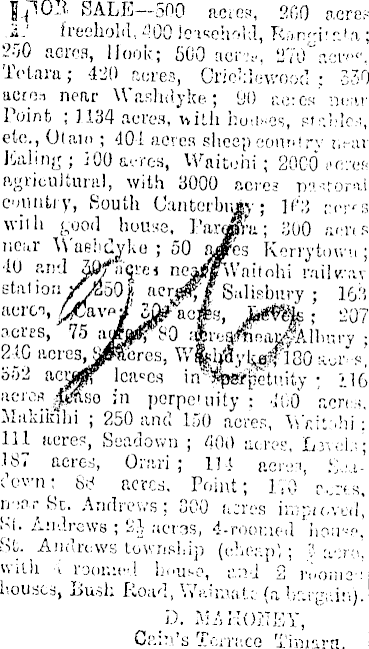 FOR SALE—500 acres, 260 acres
freehold, 400 leasehold, Rangitata;
250 acres, Hook; 500 acres, 270 acres,
Totara; 420 acres, Cricklewood; 330
acres near Washdyke; 90 acres near
Point; 1134 acres, with houses, stables,
etc., Otaio; 404 acres sheep country near
Ealing; 100 acres, Waitohi; 2000 acres
agricultural, with 3000 acres pastoral
country, South Canterbury; 163 acres
with good house, Pareora; 300 acres
near Washdyke; 50 acres Kerrytown;
40 and 30 acres near Waitohi railway
station; 250 acres, Salisbury; 163
acres, Cave; 30 acres, Levels; 207
acres, 75 acres, 80 acres near Albury;
240 acres, acres, Washdyke; 180 acres,
352 acres, leases in perpetuity; 116
acres lease in perpetuity; 400 acres,
Makikihi; 250 and 150 acres, Waitohi;
111 acres, Seadown; 400 acres, Levels;
187 acres, Orari; 114 acres, Sea-
down; 88 acres, Point; 170 acres,
near St. Andrews; 300 acres improved,
St. Andrews; 2½ acres, 4-roomed house,
St. Andrews township (cheap); acre,
with 4 roomed house, and 2 roomed
houses, Bush Road, Waimate (a bargain).
D. MAHONEY,
Cain's Terrace Timaru.